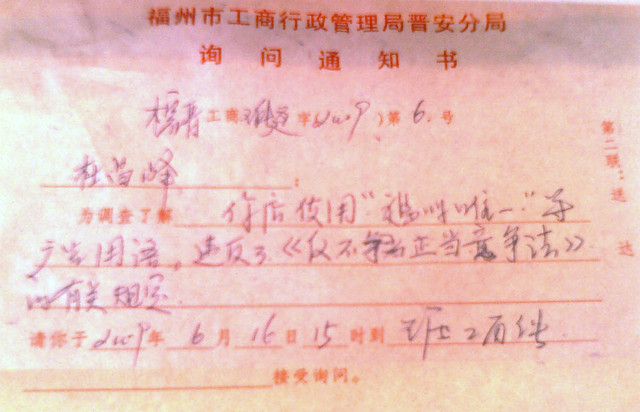 福州市工商行政管理局晋安分局
询问通知书
工商 字(2009)第6.号
第二联:送达
杜 峰:
为调查了解 你店使用"福州唯一"等
广告用语,违反了《反不正当竞争法》
的有关规定.
请你于2009年6月16日15时到
接受询问。